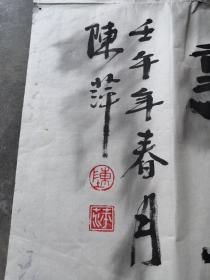 壬午年春月
陳萍
陳
萍